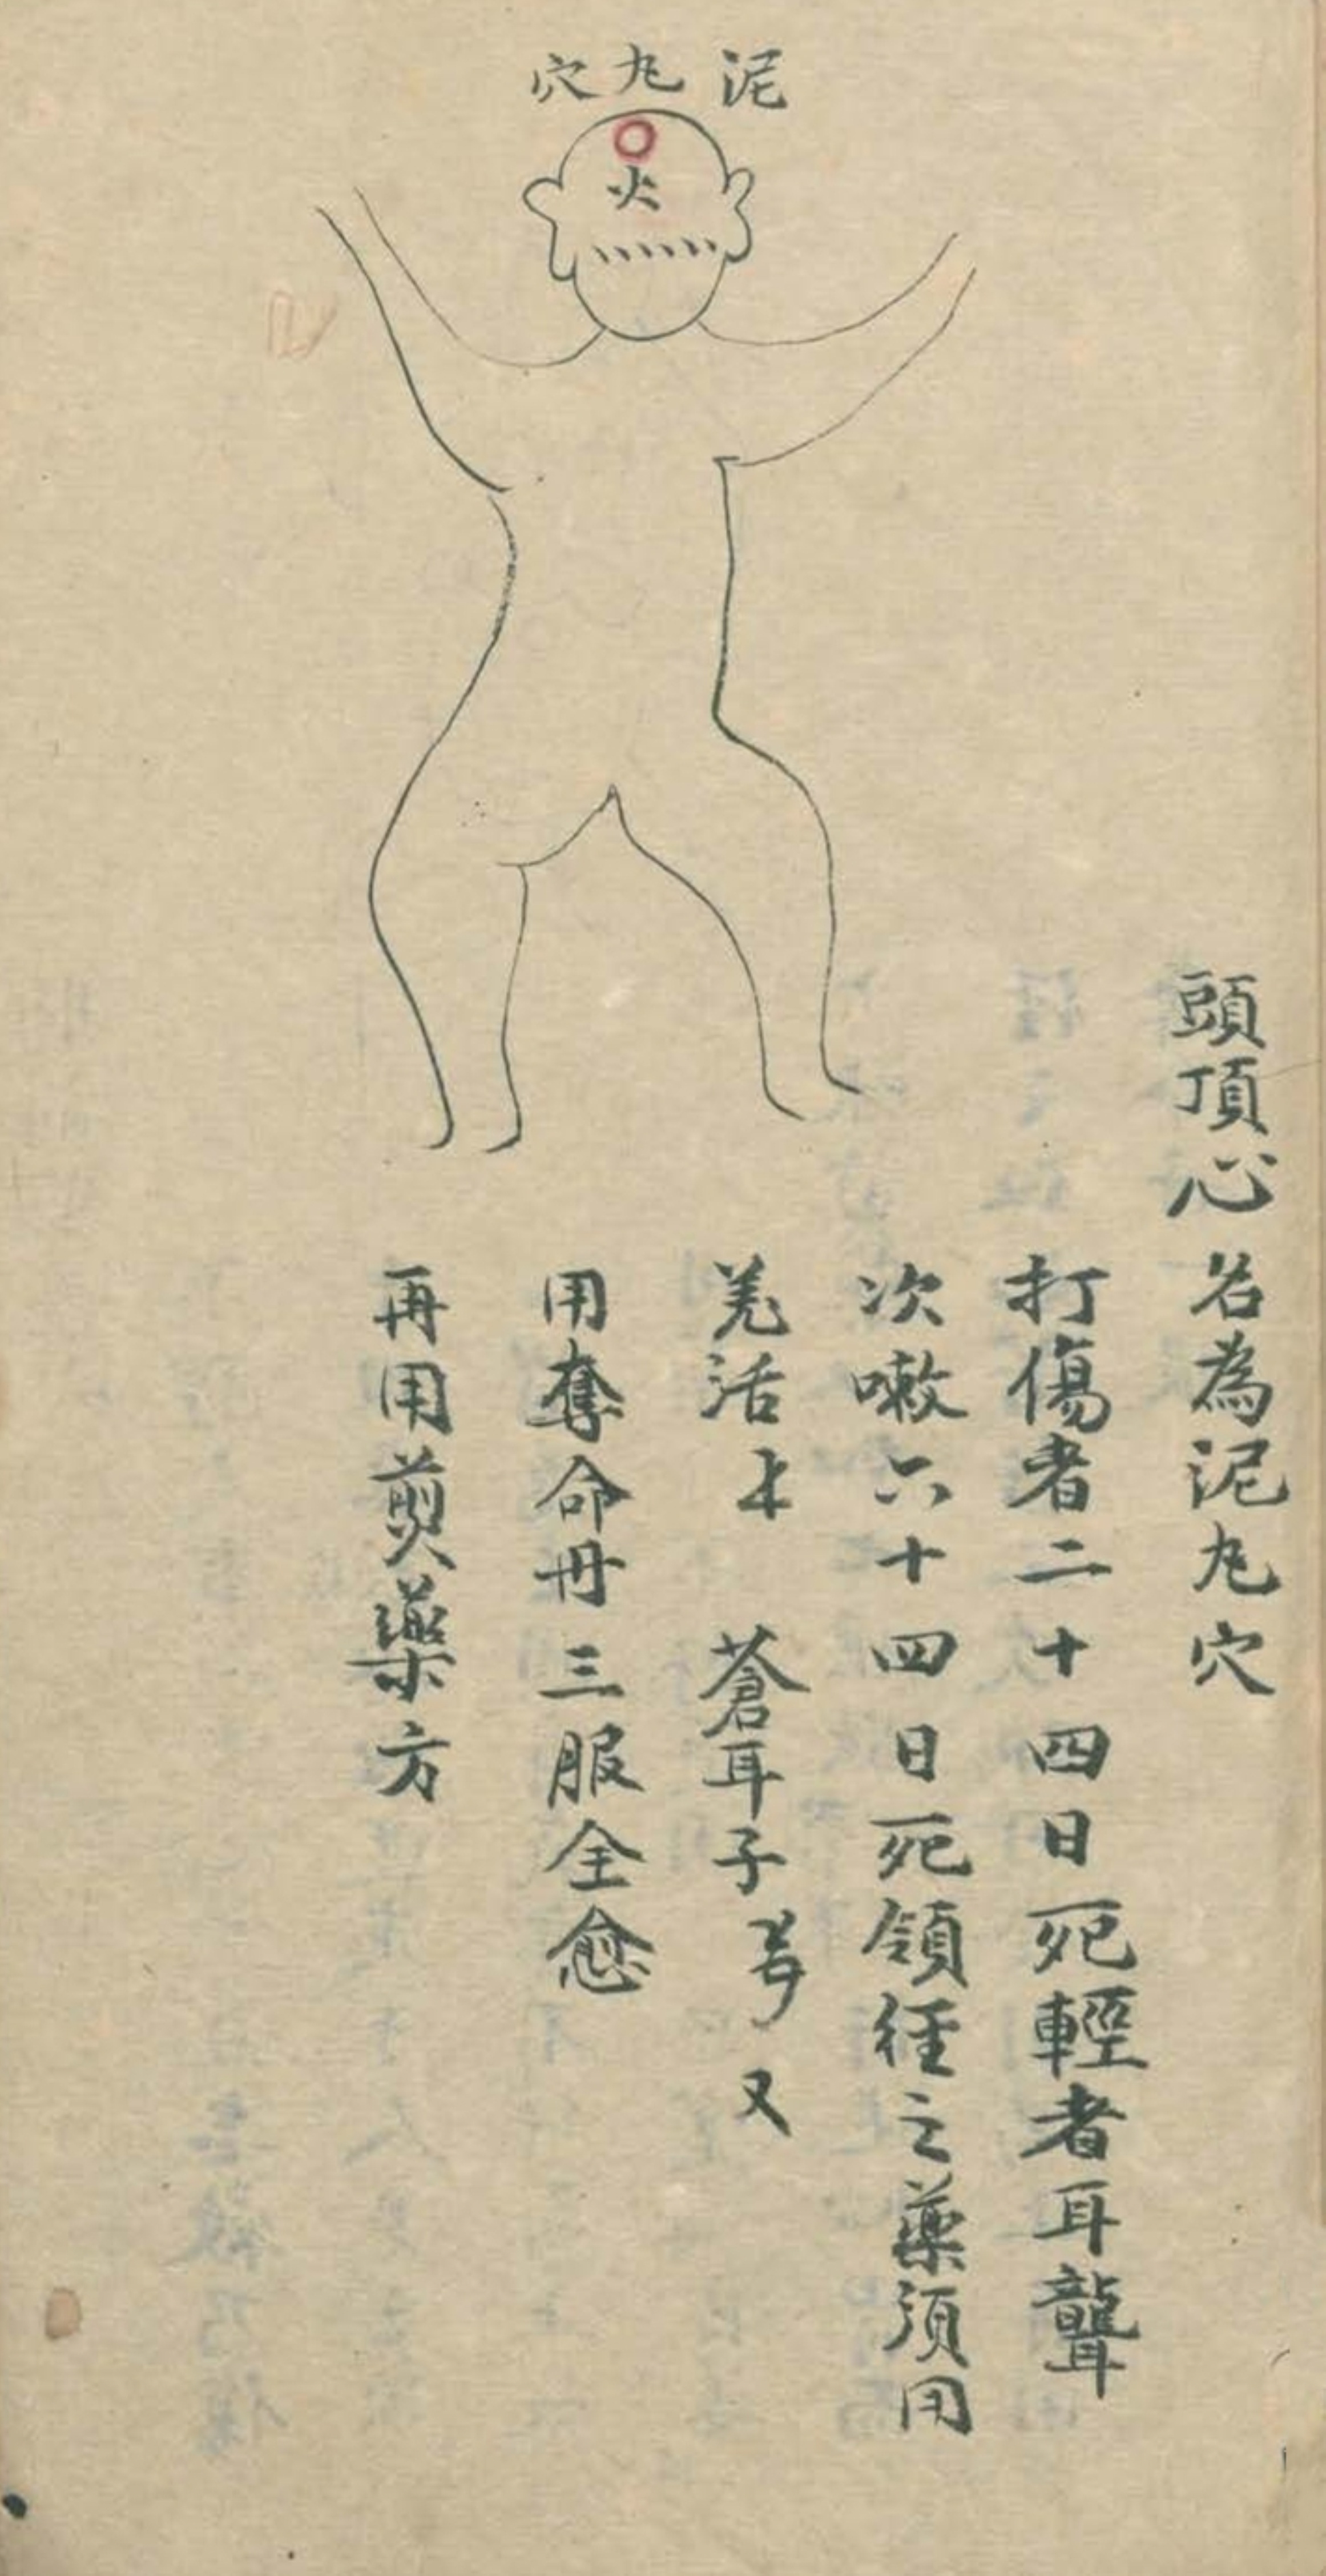 泥丸穴
火
頭頂心 名為泥丸穴
打傷者二十四日死輕者耳聾
次嗽六十四日死領徑之藥須用
羌活 蒼耳子 又
用奪命丹三服全愈
再用煎藥方